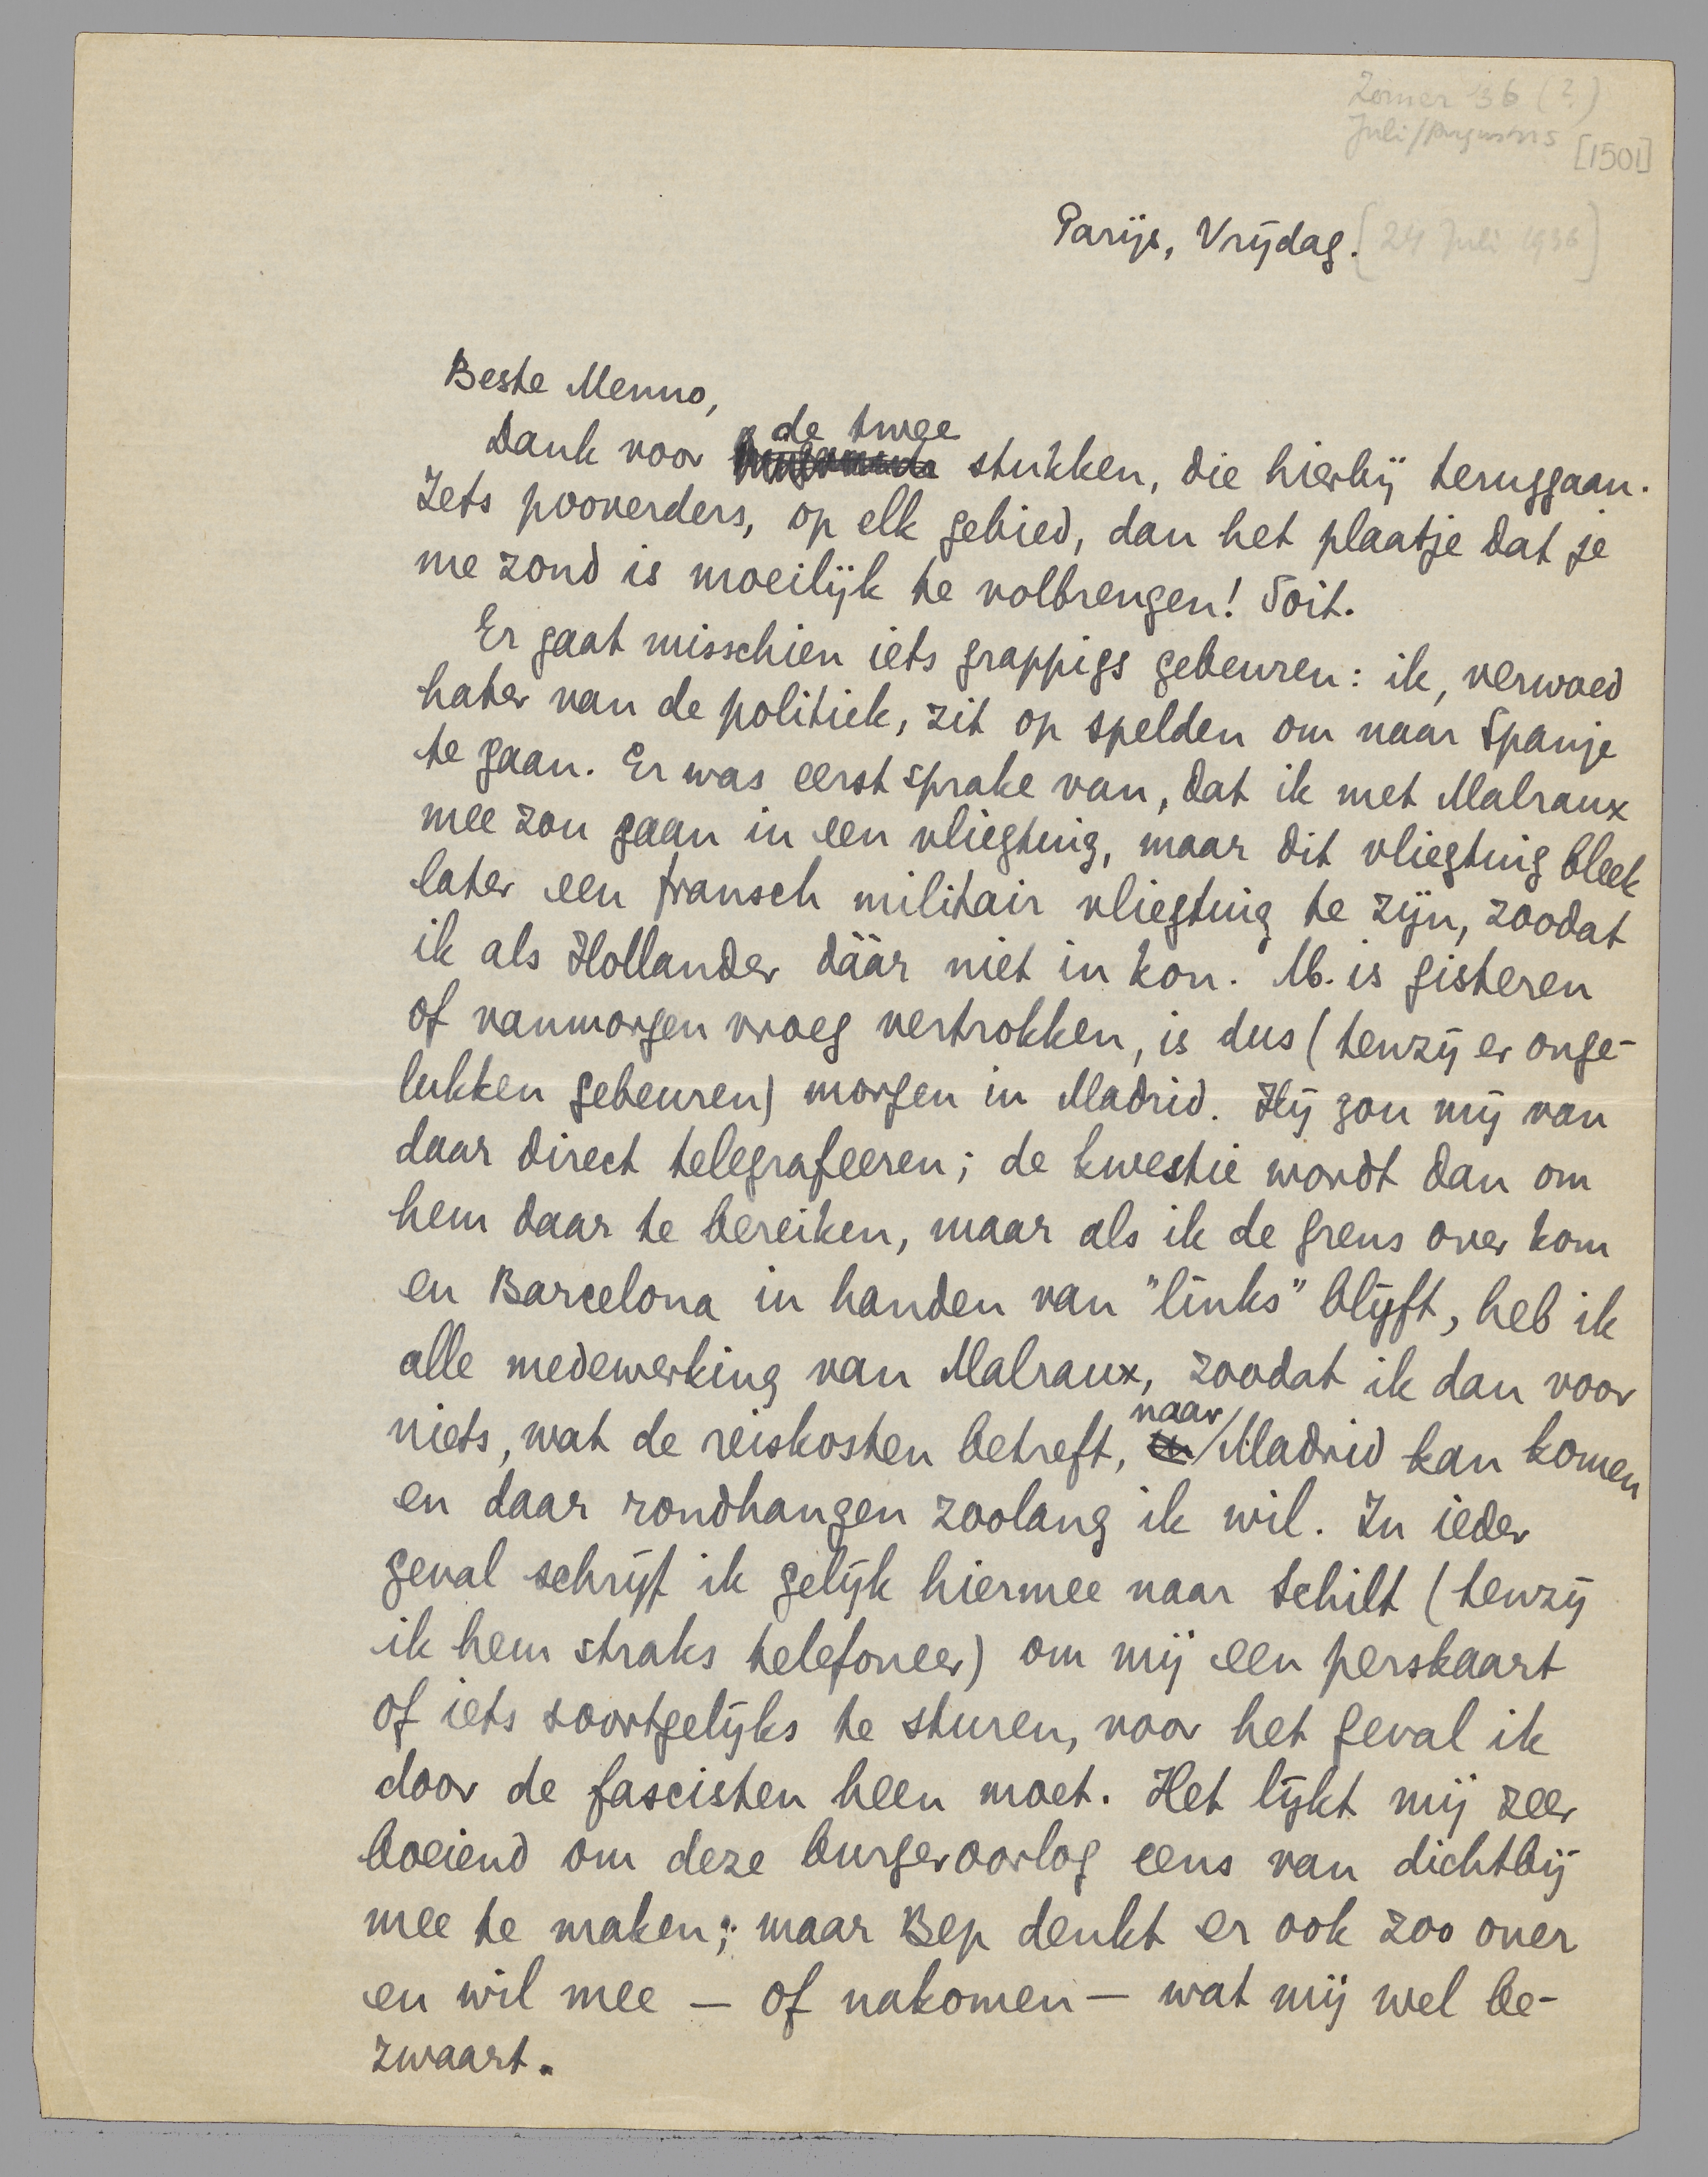 Zomer '36 (?)
Juli/Augustus
[1501]
Parijs, Vrijdag. [24 Juli 1936]
Beste Menno,
Dank voor de twee stukken, die hierbij teruggaan.
Iets pooverders, op elk gebied, dan het plaatje dat je
me zond is moeilijk te volbrengen! Soit.
Er gaat misschien iets grappigs gebeuren: ik, verwoed
hater van de politiek, zit op spelden om naar Spanje
te gaan. Er was eerst sprake van, dat ik met Malraux
mee zou gaan in een vliegtuig, maar dit vliegtuig bleek
later een fransch militair vliegtuig te zijn, zoodat
ik als Hollander dáár niet in kon. M. is gisteren
of vanmorgen vroeg vertrokken, is dus (tenzij er onge-
lukken gebeuren) morgen in Madrid. Hij zou mij van
daar direct telegrafeeren; de kwestie wordt dan om
hem daar te bereiken, maar als ik de grens over kom
en Barcelona in handen van "links" blijft, heb ik
alle medewerking van Malraux, zoodat ik dan voor
niets, wat de reiskosten betreft, naar Madrid kan komen
en daar rondhangen zoolang ik wil. In ieder
geval schrijf ik gelijk hiermee naar Schilt (tenzij
ik hem straks telefoneer) om mij een perskaart
of iets soortgelijks te sturen, voor het geval ik
door de fascisten heen moet. Het lijkt mij zeer
boeiend om deze burgeroorlog eens van dichtbij
mee te maken; maar Bep denkt er ook zoo over
en wil mee – of nakomen – wat mij wel be-
zwaart.